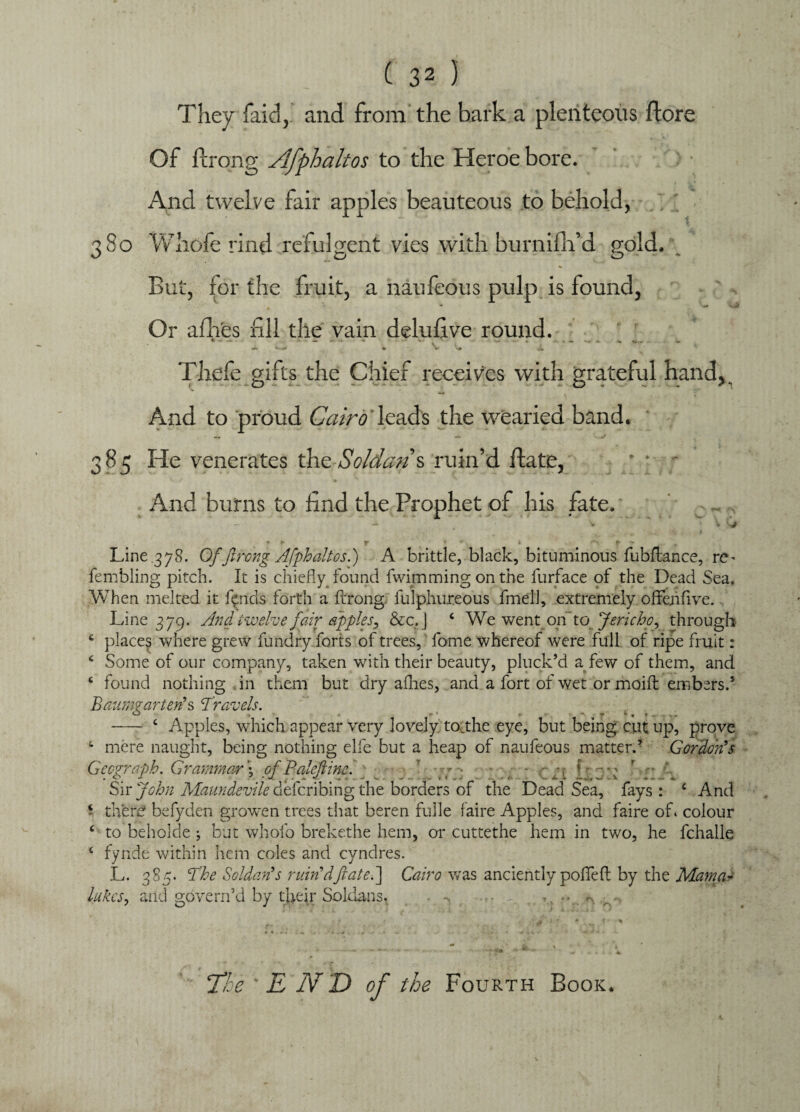 ( 32 )
They ſaid, and from the bark a plenteous ſtore
Of ſtrong Aſphaltos to the Heroe bore.
And twelve fair apples beauteous to behold,
380 Whoſe rind refulgent vies with burniſh'd gold.
But, for the fruit, a nauſeous pulp is found,
Or aſhes fill the vain deluſive round.
Theſe gifts the Chief receives with grateful hand,
And to proud Cairo leads the wearied band.
385 He venerates the Soldan's ruin'd ſtate,
And burns to find the Prophet of his fate.
Line 378. Of ſtrong Aſphaltos.) A brittle, black, bituminous ſubſtance, re-
ſembling pitch. It is chiefly found ſwimming on the ſurface of the Dead Sea.
When melted it ſends forth a ſtrong ſulphureous ſmell, extremely offenſive.
Line 379. And twelve fair apples, &c.] ‘ We went on to Jericho, through
‘ places where grew ſundry ſorts of trees, ſome whereof were full of ripe fruit :
‘ Some of our company, taken with their beauty, pluck'd a few of them, and
‘ found nothing in them but dry aſhes, and a ſort of wet or moiſt embers.’
Baumgarten's Travels.
—— ‘ Apples, which appear very lovely to the eye, but being cut up, prove
‘ mere naught, being nothing elſe but a heap of nauſeous matter.’ Gordon's
Geograph. Grammar ; of Paleſtine.
Sir John Maundevile deſcribing the borders of the Dead Sea, ſays : ‘ And
‘ there beſyden growen trees that beren fulle faire Apples, and faire of colour
‘ to beholde ; but whoſo brekethe hem, or cuttethe hem in two, he ſchalle
‘ fynde within hem coles and cyndres.
L. 385. The Soldan's ruin'd ſtate.] Cairo was anciently poſſeſt by the Mama-
lukes, and govern'd by their Soldans.
The END of the Fourth Book.